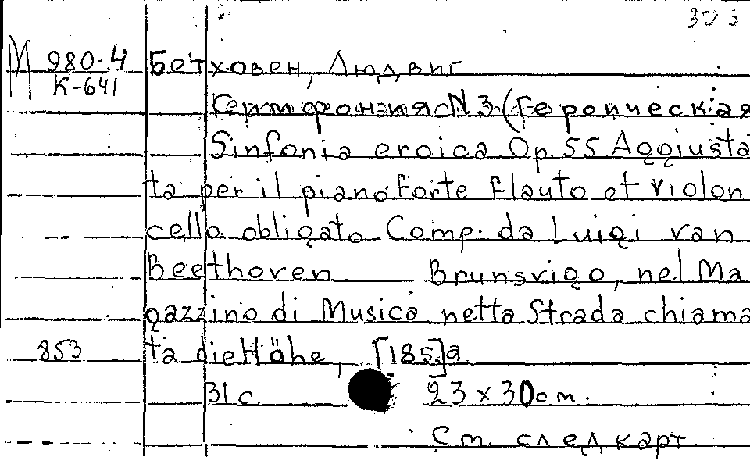 М 980-4
К-641
Бетховен, Людвиг
N 3 (Героическая
Sinfonia eroica Op 55 Aggiusta
ta per il piano forte flauto et violon
cello obligato Comp. da Luigi van
Beethoven Brunsvigo, nel Ma
gazzino di Musica netta Strada chiama
853 ta die Höhe, [185]
31 с 23 x 30 cm.
См. след карт